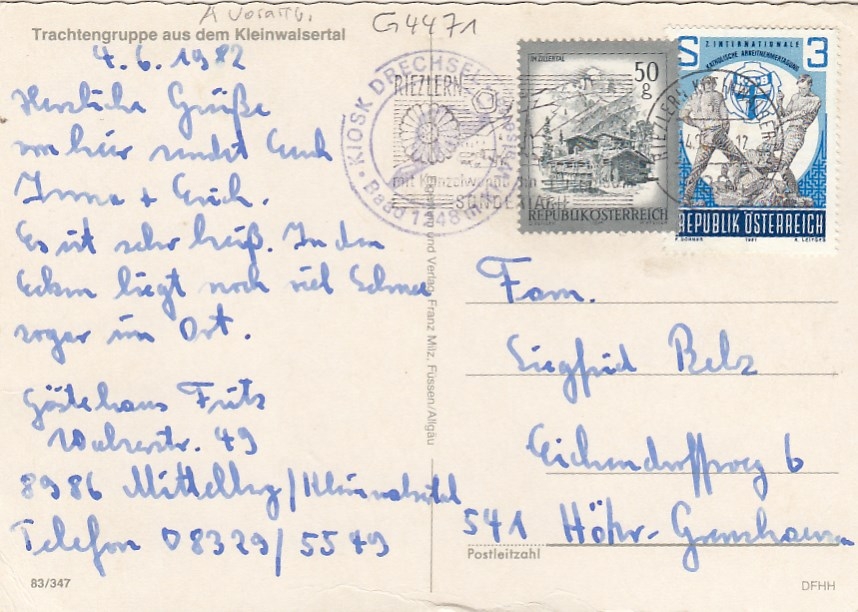 A Vorarlb.
G4471
Trachtengruppe aus dem Kleinwalsertal
4.6.1982
Herzliche Grüße
von hier sendet Euch
Irma + Erich.
Es ist sehr heiß. In den
Ecken liegt noch viel Schnee
sogar im Ort.
Gästehaus Fritz
Walserstr. 49
8986 Mittelberg/Kleinwalsertal
Telefon 08329/5549
83/347
und Verlag Franz Milz, Füssen/Allgäu
KIOSK DRECHSEL
RIEZLERN
mit Kanzelwand
IM ZILLERTAL
50
g
REPUBLIK ÖSTERREICH
2. INTERNATIONALE
KATHOLISCHE ARBEITNEHMERTAGUNG
S 3
REPUBLIK ÖSTERREICH
1981
Fam.
Siegfried Belz
Eichendorffweg 6
541 Höhr-Grenzhausen
Postleitzahl
DFHH